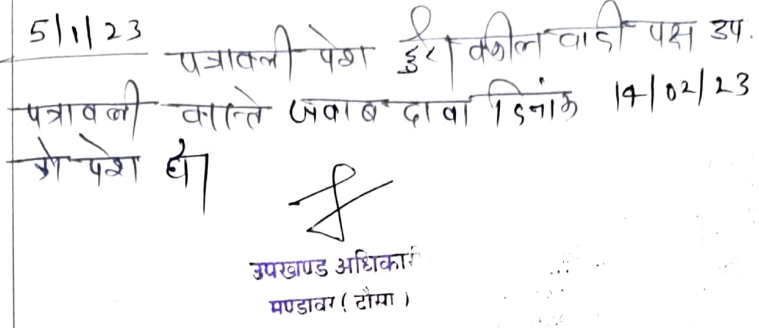 5/1/23
पत्रावली पेश हुई। वकील वादी पक्ष उप.
पत्रावली वास्ते जवाब दावा दिनांक 14/02/23
को पेश हो।
उपखण्ड अधिकारी
मण्डावर (दौसा)